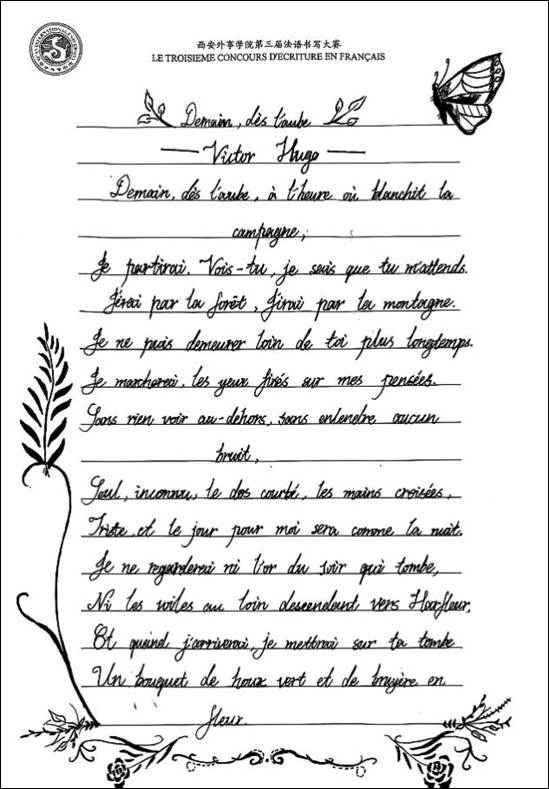 西安外事学院第三届法语书写大赛
LE TROISIEME CONCOURS D'ECRITURE EN FRANÇAIS
Demain, dès l'aube
— Victor Hugo —
Demain, dès l'aube, à l'heure où blanchit la
campagne,
Je partirai. Vois-tu, je sais que tu m'attends.
J'irai par la forêt, J'irai par la montagne.
Je ne puis demeurer loin de toi plus longtemps.
Je marcherai, les yeux fixés sur mes pensées.
Sans rien voir au-dehors, sans entendre aucun
bruit,
Seul, inconnu, le dos courbé, les mains croisées,
Triste, et le jour pour moi sera comme la nuit.
Je ne regarderai ni l'or du soir qui tombe,
Ni les voiles au loin descendant vers Harfleur,
Et quand j'arriverai, je mettrai sur ta tombe
Un bouquet de houx vert et de bruyère en
fleur.